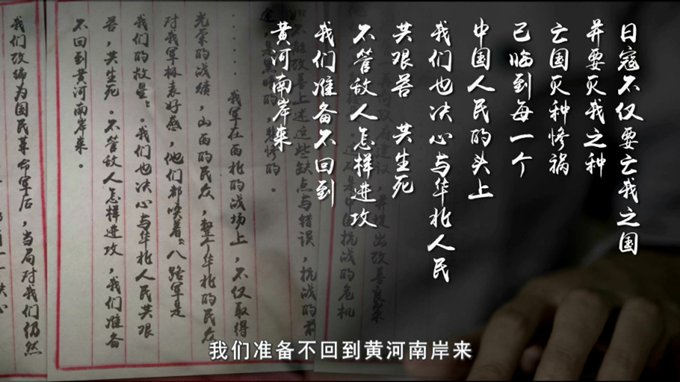 日寇不仅要亡我之国
并要灭我之种
亡国灭种惨祸
已临到每一个
中国人民的头上
我们也决心与华北人民
共艰苦 共生死
不管敌人怎样进攻
我们准备不回到
黄河南岸来
不能改善上述这些缺点与错误，抗战的前
……我军在西北的战场上，不仅取得
光荣的战绩，山西的民众，整个华北的民众
对我军极表好感，他们都唤着"八路军是
我们的救星"。我们也决心与华北人民共艰
苦，共生死。不管敌人怎样进攻，我们准备
不回到黄河南岸来。
我们改编为国民革命军后，当局对我们仍然
我们准备不回到黄河南岸来